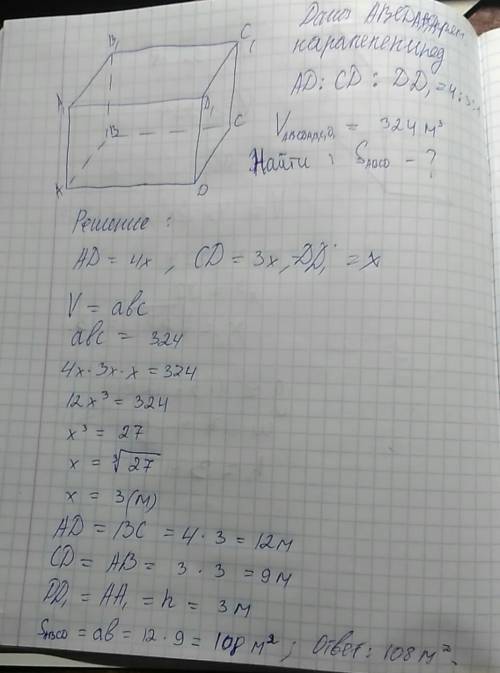 B₁ C₁
A D₁
B C
A D
Дано: ABCD
параллелепипед
AD : CD : DD₁ = 4:3:1
V = 324 м³
Найти : Sабсд - ?
Решение :
AD = 4x , CD = 3x, DD₁ = x
V = abc
abc = 324
4x·3x·x = 324
12x³ = 324
x³ = 27
x = ∛27
x = 3(м)
AD = BC = 4 · 3 = 12м
CD = AB = 3 · 3 = 9м
DD₁ = AA₁ = h = 3м
Sабсд = ab = 12 · 9 = 108 м² ; Ответ: 108 м².